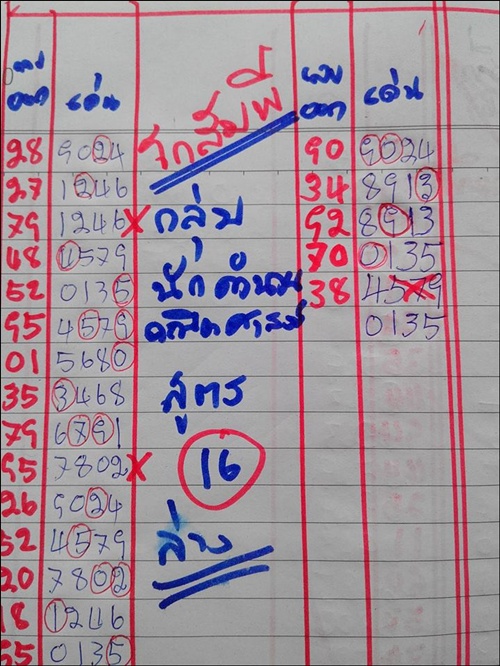 เลข
ออก เด่น
28 9024
27 1246
79 1246 X
48 4579
52 0135
95 4579
01 5680
35 3468
79 6791
95 7802 X
26 9024
52 4579
20 7802
18 1246
55 0135
กลุ่ม
นักคำนวณ
คณิตศาสตร์
สูตร
16
ล่าง
เลข
ออก เด่น
90 9024
34 8913
92 8913
70 0135
38 4579
0135